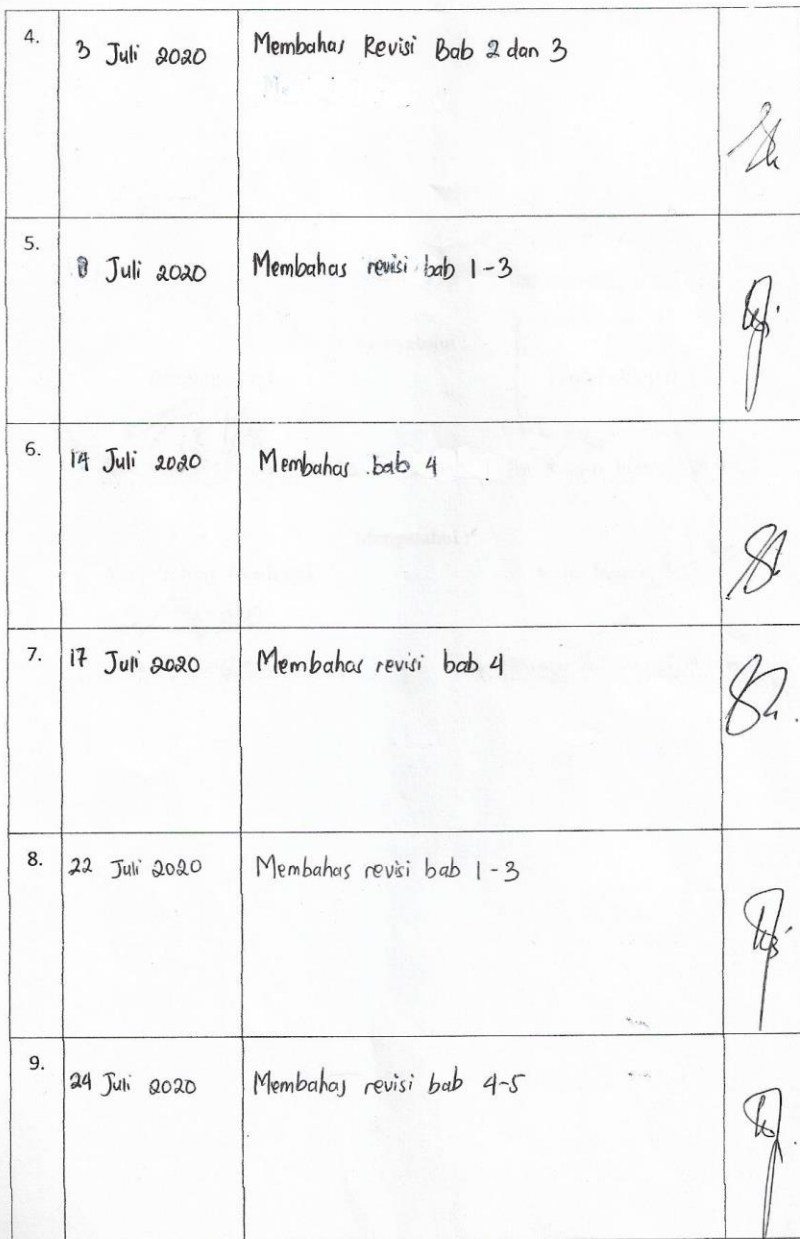 4. 3 Juli 2020 Membahas Revisi Bab 2 dan 3
5. Juli 2020 Membahas revisi bab 1-3
6. 14 Juli 2020 Membahas bab 4
7. 17 Juli 2020 Membahas revisi bab 4
8. 22 Juli 2020 Membahas revisi bab 1-3
9. 24 Juli 2020 Membahas revisi bab 4-5